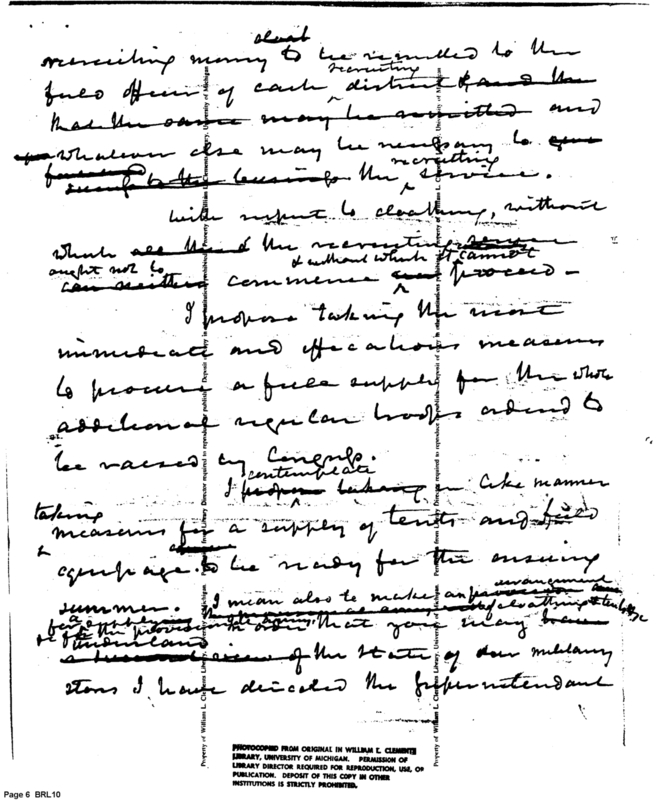 about
recruiting money to be remitted to the
field officer of each recruiting district & and the
that the same may be remitted and
whatever else may be necessary to give
the recruiting service.
With respect to cloathing, without
which the recruiting service
ought not to commence & without which it cannot proceed -
can neither
I propose taking the most
immediate and efficatious measures
to procure a full supply for the whole
additional regular troops ordered to
be raised by Congress.
I contemplate in like manner
propose taking
taking measures for a supply of tents and field
equipage to be ready for the ensuing
summer. I mean also to make an arrangement
in order that you may have
understand
of the State of our military
stores I have directed the Superintendant
Property of William L. Clements Library, University of Michigan. Permission from Library Director required to reproduce or publish. Deposit
PHOTOCOPIED FROM ORIGINAL IN WILLIAM L. CLEMENTS
LIBRARY, UNIVERSITY OF MICHIGAN. PERMISSION OF
LIBRARY DIRECTOR REQUIRED FOR REPRODUCTION, USE, OR
PUBLICATION. DEPOSIT OF THIS COPY IN OTHER
INSTITUTIONS IS STRICTLY PROHIBITED.
Page 6 BRL10